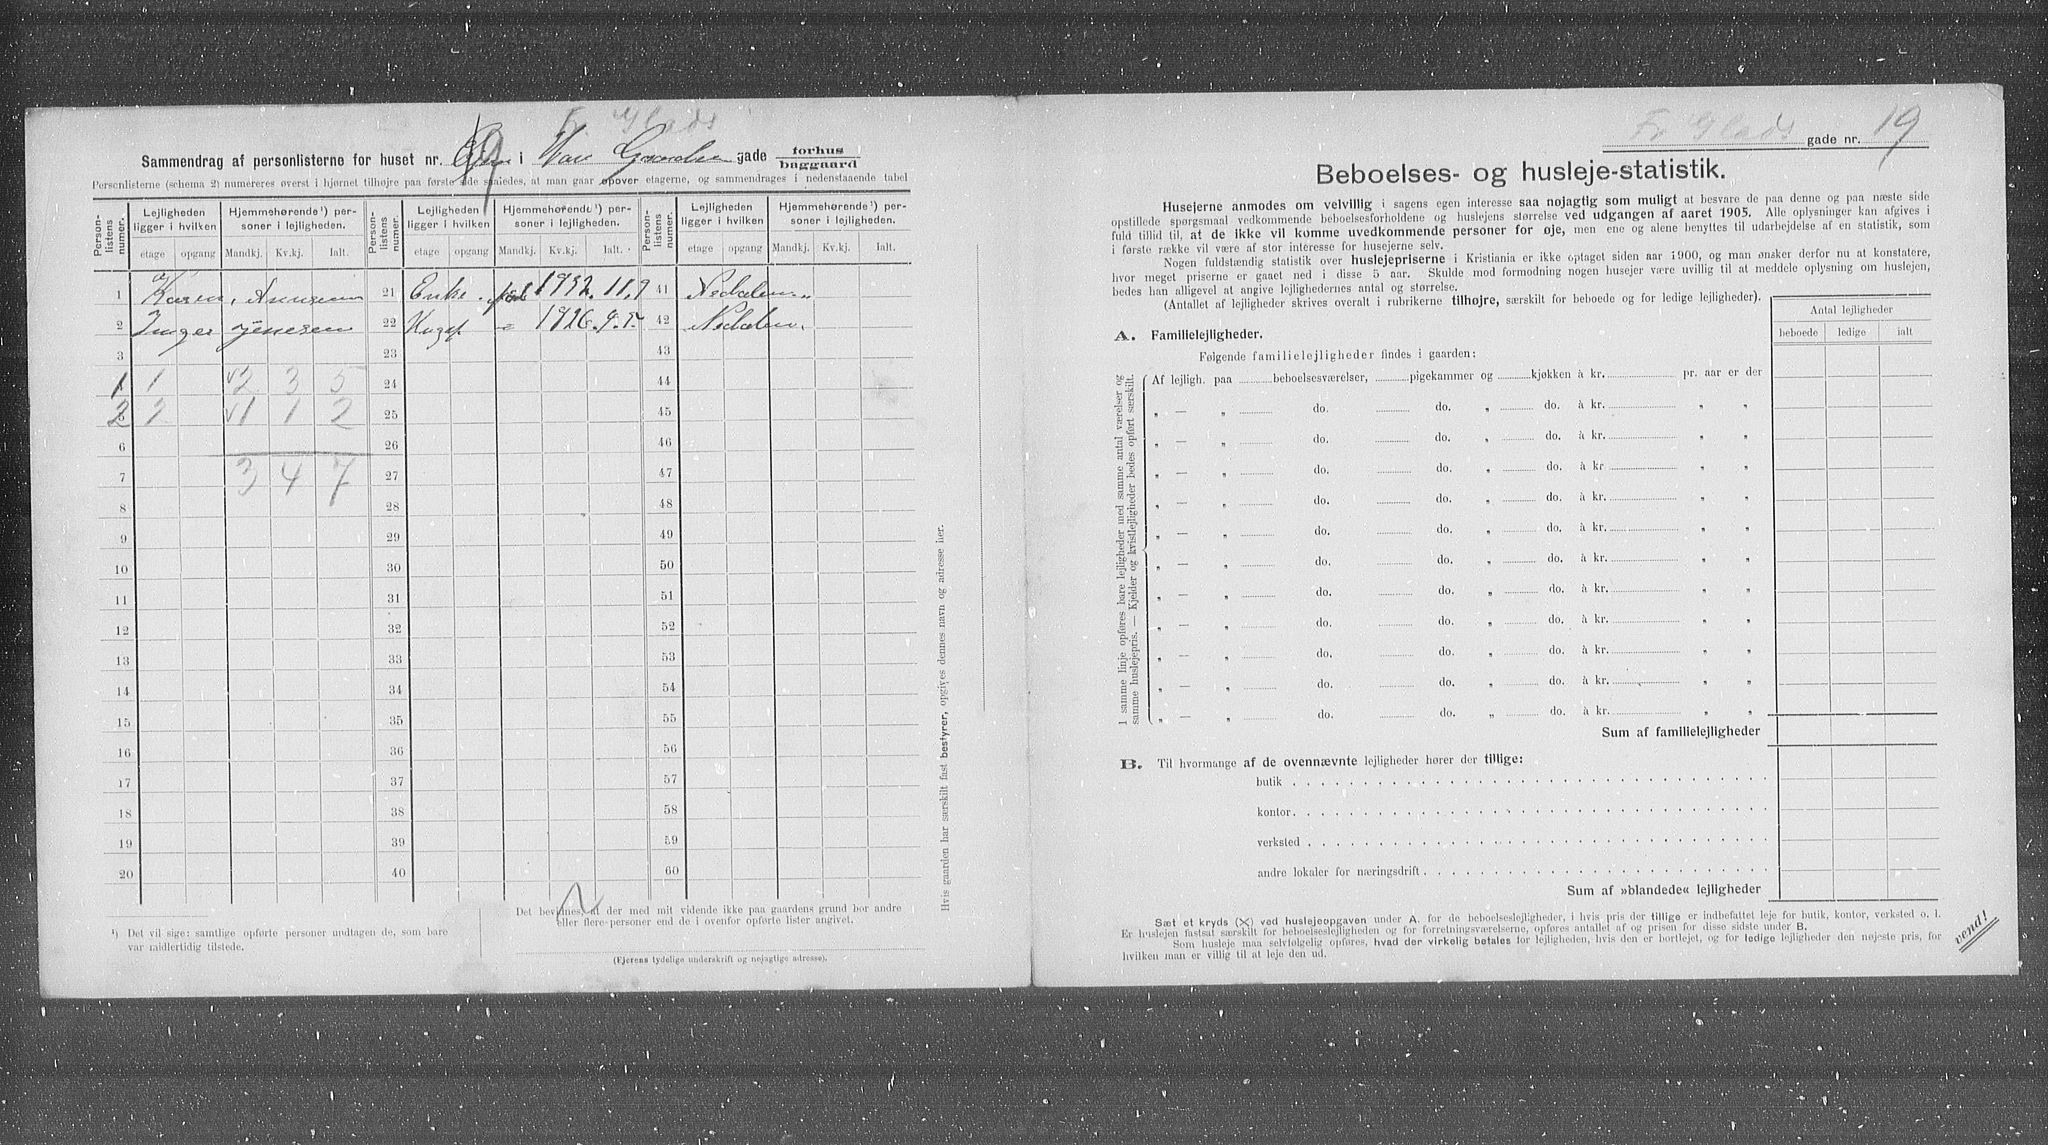 Fr Glads
Sammendrag af personlisterne for huset nr. 19 i gade forhus
baggaard
Personlisterne (schema 2) numereres øverst i hjørnet tilhøjre paa første side saaledes, at man gaar opover etagerne, og sammendrages i nedenstaaende tabel
Person-listens numer. Lejligheden ligger i hvilken Hjemmehørende ¹) personer i lejligheden. Person-listens numer. Lejligheden ligger i hvilken Hjemmehørende ¹) personer i lejligheden. Person-listens numer. Lejligheden ligger i hvilken Hjemmehørende ¹) personer i lejligheden.
etage opgang Mandkj. Kv.kj. Ialt. etage opgang Mandkj. Kv.kj. Ialt. etage opgang Mandkj. Kv.kj. Ialt.
1 Karen 21 Enke. 1832. 11. 9 41
2 Inger Jensen 22 1826. 9. 42
3 23 43
1 1 2 3 5 24 44
2 2 1 1 2 25 45
6 26 46
7 3 4 7 27 47
8 28 48
9 29 49
10 30 50
11 31 51
12 32 52
13 33 53
14 34 54
15 35 55
16 36 56
17 37 57
18 38 58
19 39 59
20 40 60
Det bevidnes, at der med mit vidende ikke paa gaardens grund bor andre
eller flere personer end de i ovenfor opførte lister angivet.
(Ejerens tydelige underskrift og nøjagtige adresse).
¹) Det vil sige: samtlige opførte personer undtagen de, som bare
var midlertidig tilstede.
Hvis gaarden har særskilt fast bestyrer, opgives dennes navn og adresse her.
Fr Glads gade nr. 19
Beboelses- og husleje-statistik.
Husejerne anmodes om velvillig i sagens egen interesse saa nøjagtig som muligt at besvare de paa denne og paa næste side
opstillede spørgsmaal vedkommende beboelsesforholdene og huslejens størrelse ved udgangen af aaret 1905. Alle oplysninger kan afgives i
fuld tillid til, at de ikke vil komme uvedkommende personer for øje, men ene og alene benyttes til udarbejdelse af en statistik, som
i første række vil være af stor interesse for husejerne selv.
Nogen fuldstændig statistik over huslejepriserne i Kristiania er ikke optaget siden aar 1900, og man ønsker derfor nu at konstatere,
hvor meget priserne er gaaet ned i disse 5 aar. Skulde mod formodning nogen husejer være uvillig til at meddele oplysning om huslejen,
bedes han alligevel at angive lejlighedernes antal og størrelse.
(Antallet af lejligheder skrives overalt i rubrikerne tilhøjre, særskilt for beboede og for ledige lejligheder).
Antal lejligheder
beboede ledige ialt
A. Familielejligheder.
Følgende familielejligheder findes i gaarden:
1 samme linje opføres bare lejligheder med samme antal værelser og
samme huslejepris. — Kjelder og kvistlejligheder bedes opført særskilt.
Af lejligh. paa beboelsesværelser, pigekammer og kjøkken à kr. pr. aar er der
„ — „ do. do. „ do. à kr. „ „
„ — „ do. do. „ do. à kr. „ „
„ — „ do. do. „ do. à kr „ „
„ — „ do. do. „ do. à kr. „ „
„ — „ do. do. „ do. à kr. „ „
„ — „ do. do. „ do. à kr. „ „
„ — „ do. do. „ do. à kr. „ „
„ — „ do. do. „ do. à kr. „ „
„ — „ do. do. „ do. à kr. „ „
„ — „ do. do. „ do. à kr. „ „
„ — „ do. do. „ do. à kr. „ „
Sum af familielejligheder
B. Til hvormange af de ovennævnte lejligheder hører der tillige:
butik
kontor
verksted
andre lokaler for næringsdrift
Sum af »blandede« lejligheder
Sæt et kryds (X) ved huslejeopgaven under A. for de beboelseslejligheder, i hvis pris der tillige er indbefattet leje for butik, kontor, verksted o. l.
Er huslejen fastsat særskilt for beboelseslejligheden og for forretningsværelserne, opføres antallet af og prisen for disse sidste under B.
Som husleje maa selvfølgelig opføres, hvad der virkelig betales for lejligheden, hvis den er bortlejet, og for ledige lejligheder den nøjeste pris, for
hvilken man er villig til at leje den ud.
vend!